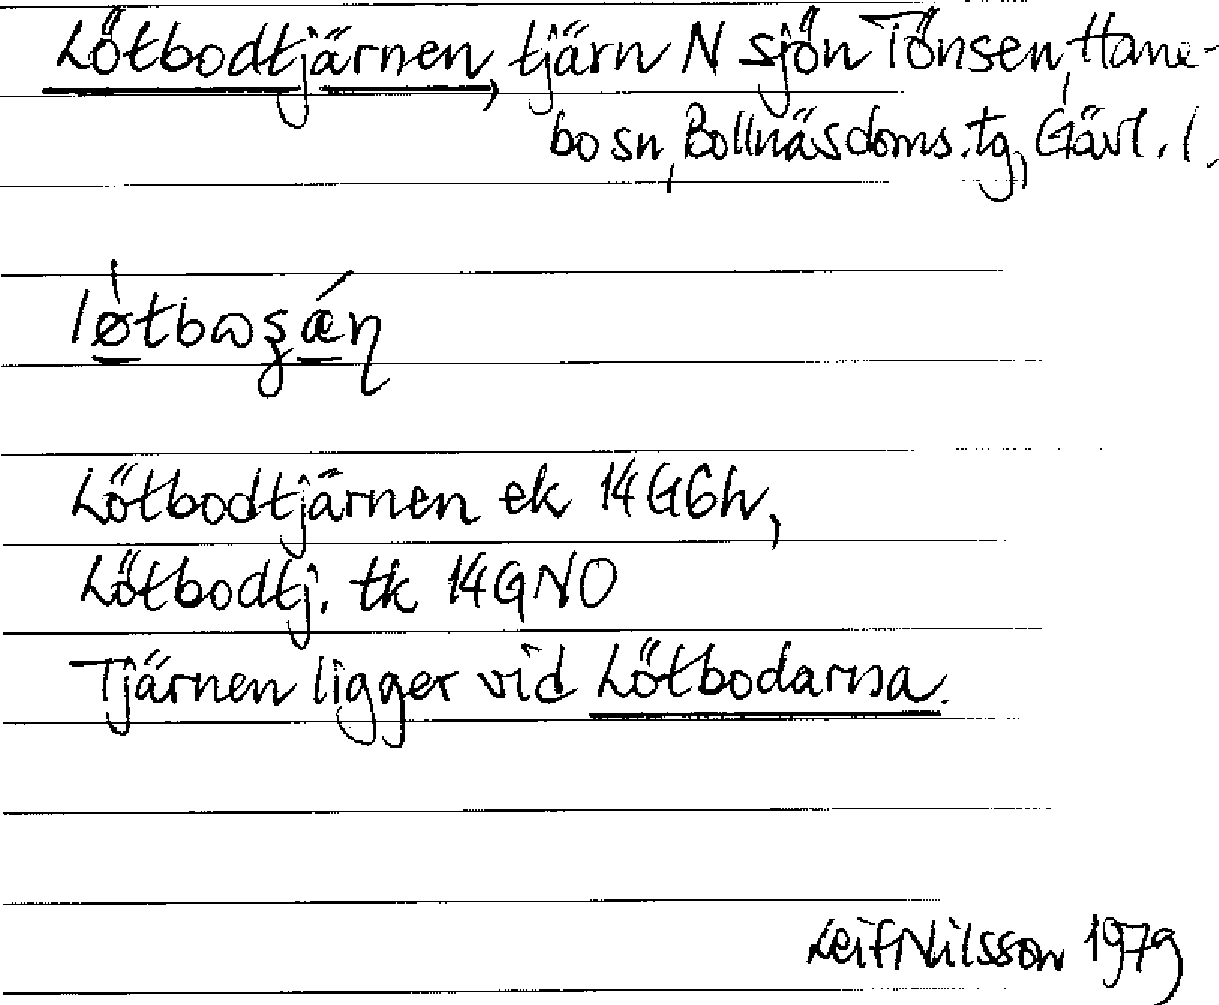 Lötbodtjärnen, tjärn N sjön Tönsen, Hane-
bo sn, Bollnäs doms. tg, Gävl. l.
Lötbodtjärnen ek 14G6h,
Lötbodtj. tk 14GNO
Tjärnen ligger vid Lötbodarna.
Leif Nilsson 1979